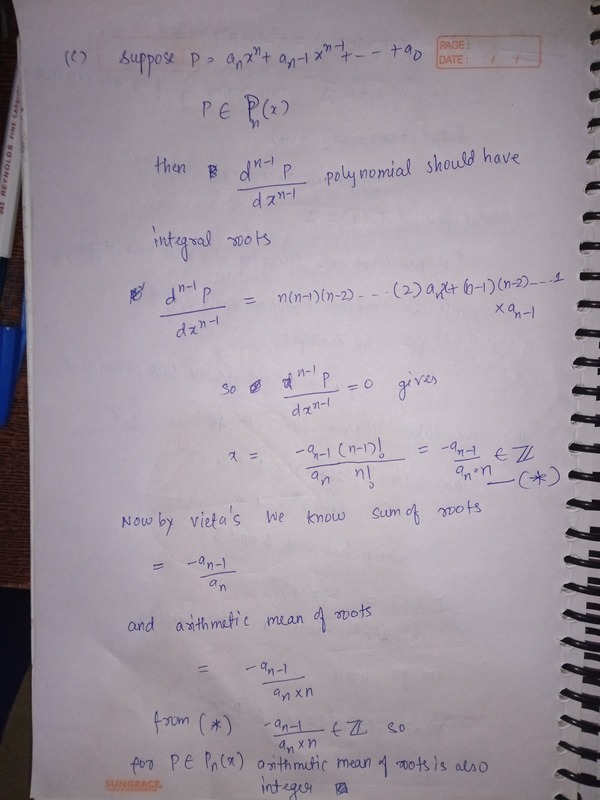 PAGE:
DATE: / /
(c) Suppose P = aₙxⁿ + aₙ₋₁xⁿ⁻¹ + - - + a₀
P ∈ ℙₙ(x)
then dⁿ⁻¹P / dxⁿ⁻¹ polynomial should have
integral roots
dⁿ⁻¹P / dxⁿ⁻¹ = n(n-1)(n-2) --- (2) aₙx + (n-1)(n-2) --- 1
× aₙ₋₁
so dⁿ⁻¹P / dxⁿ⁻¹ = 0 gives
x = -aₙ₋₁ (n-1)! / aₙ n! = -aₙ₋₁ / aₙ·n ∈ ℤ
— (*)
Now by vieta's we know sum of roots
= -aₙ₋₁ / aₙ
and arithmetic mean of roots
= -aₙ₋₁ / aₙ × n
from (*) -aₙ₋₁ / aₙ × n ∈ ℤ so
for P ∈ Pₙ(x) arithmetic mean of roots is also
integer
SUNGRACE
REYNOLDS